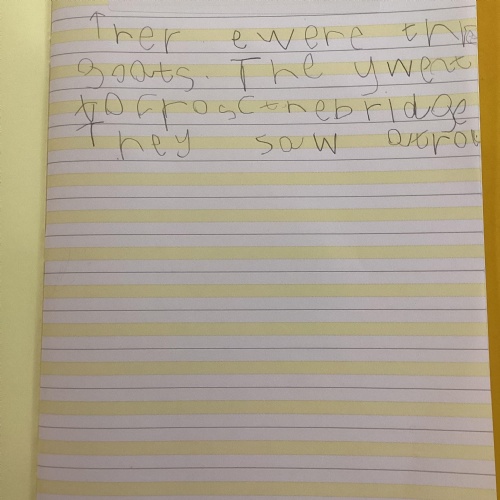 Ther ewere thr
goats. The ywent
to croscthebridge
They saw atrol